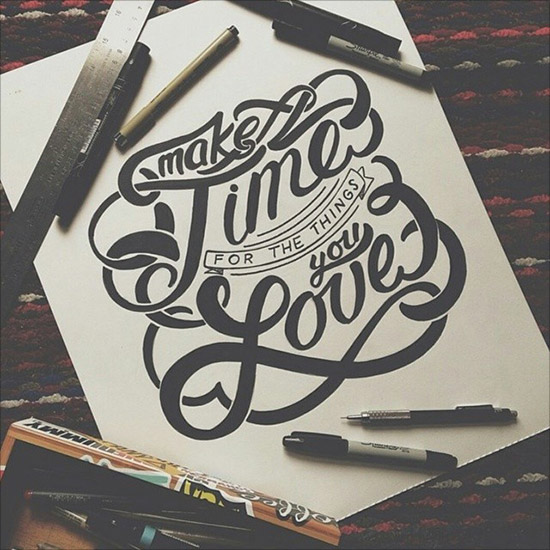 make
Time
FOR THE THINGS
you
Love